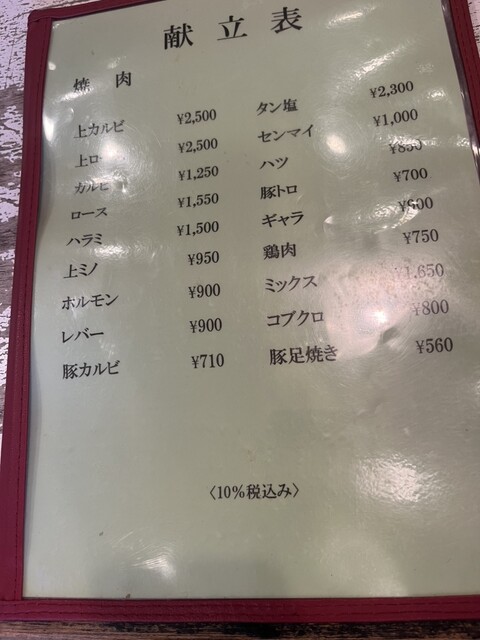 献立表
焼肉
上カルビ ¥2,500
上ロ ¥2,500
カルビ ¥1,250
ロース ¥1,550
ハラミ ¥1,500
上ミノ ¥950
ホルモン ¥900
レバー ¥900
豚カルビ ¥710
タン塩 ¥2,300
センマイ ¥1,000
ハツ ¥850
豚トロ ¥700
ギャラ
鶏肉 ¥750
ミックス ¥1,650
コブクロ ¥800
豚足焼き ¥560
〈10%税込み〉